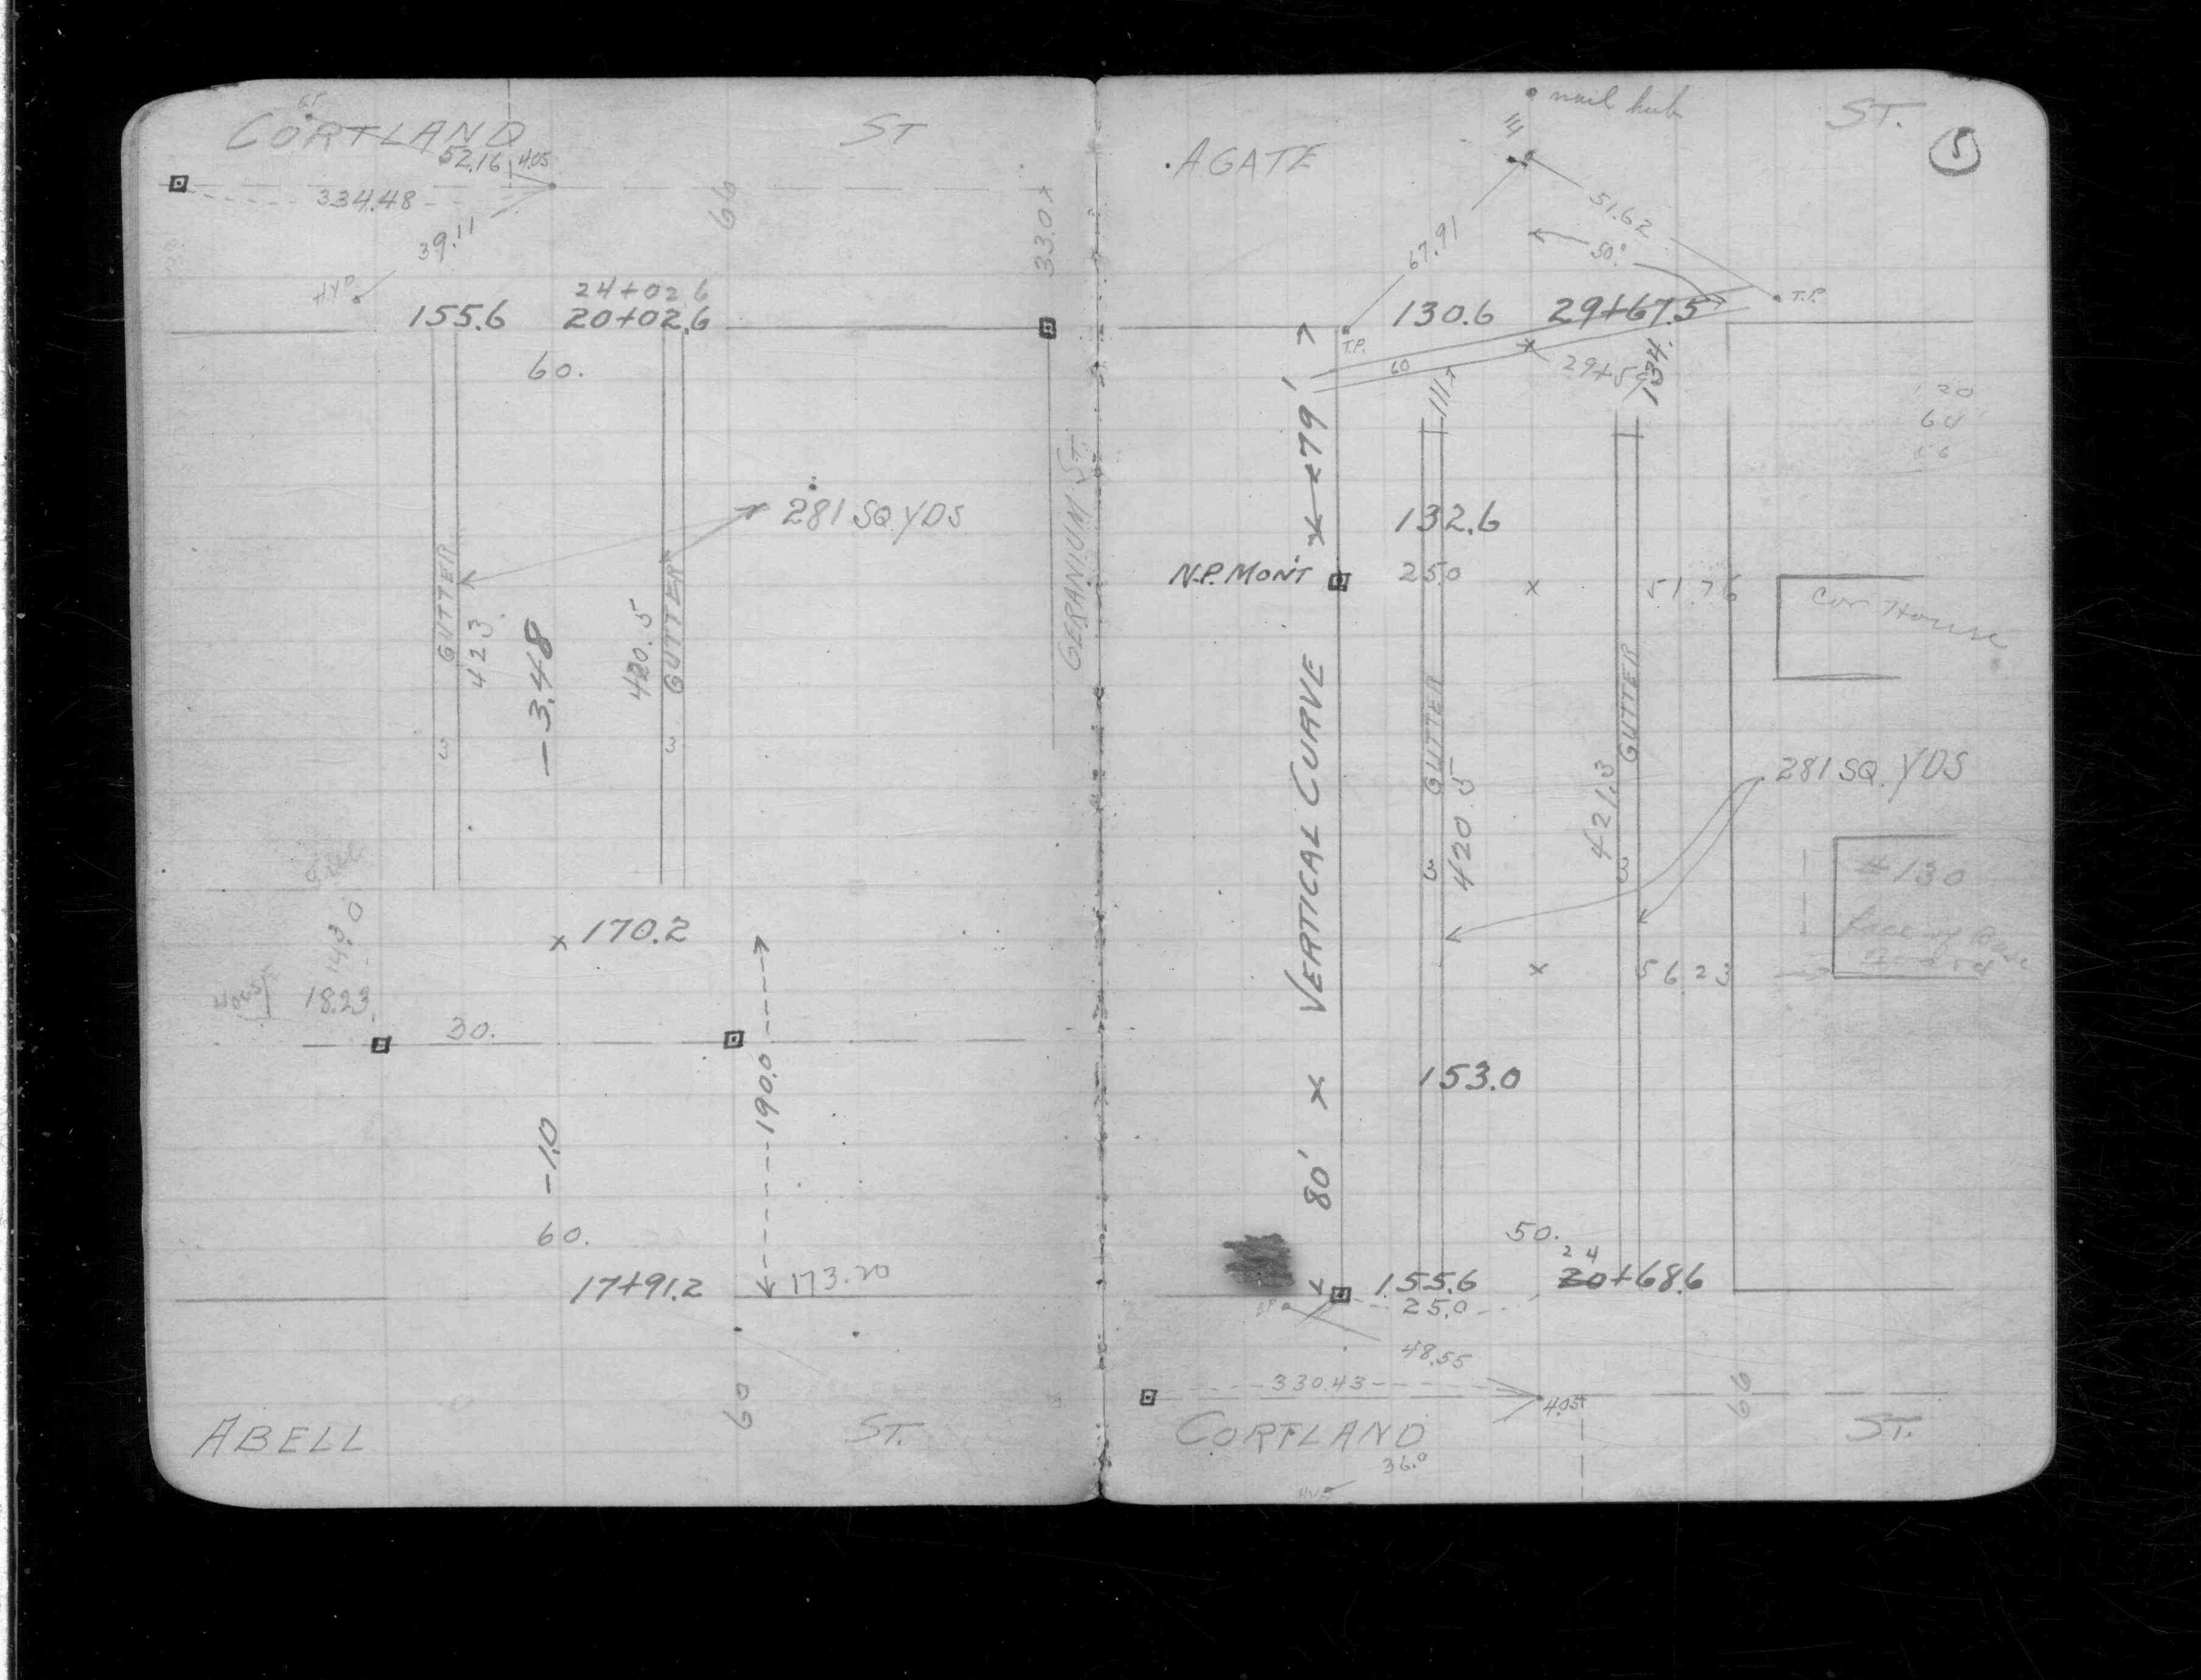 CORTLAND ST
52.16 4.05
334.48
39.11
66
33.0
HYD
24+02.6
155.6 20+02.6
60.
281 SQ YDS
GERANIUM ST.
GUTTER
423
-3.48
420.5
GUTTER
3
3
170.2
143.0
HOUSE
18.23
30.
190.0
-1.0
60.
17+91.2 173.20
60
ABELL ST.
nail hub
AGATE ST.
5
51.62
67.91
50°
130.6 29+67.5
T.P.
T.P.
60
29+59
134.
111
79'
132.6
N.P. MON'T 25.0
51.76
Cor House
VERTICAL CURVE
GUTTER
GUTTER
281 SQ. YDS
420.5
421.3
3
3
#130
face of Base
Board
56.23
153.0
80'
50.
24
155.6 20+68.6
25.0
48.55
330.43
4.05
66
CORTLAND ST.
36.0